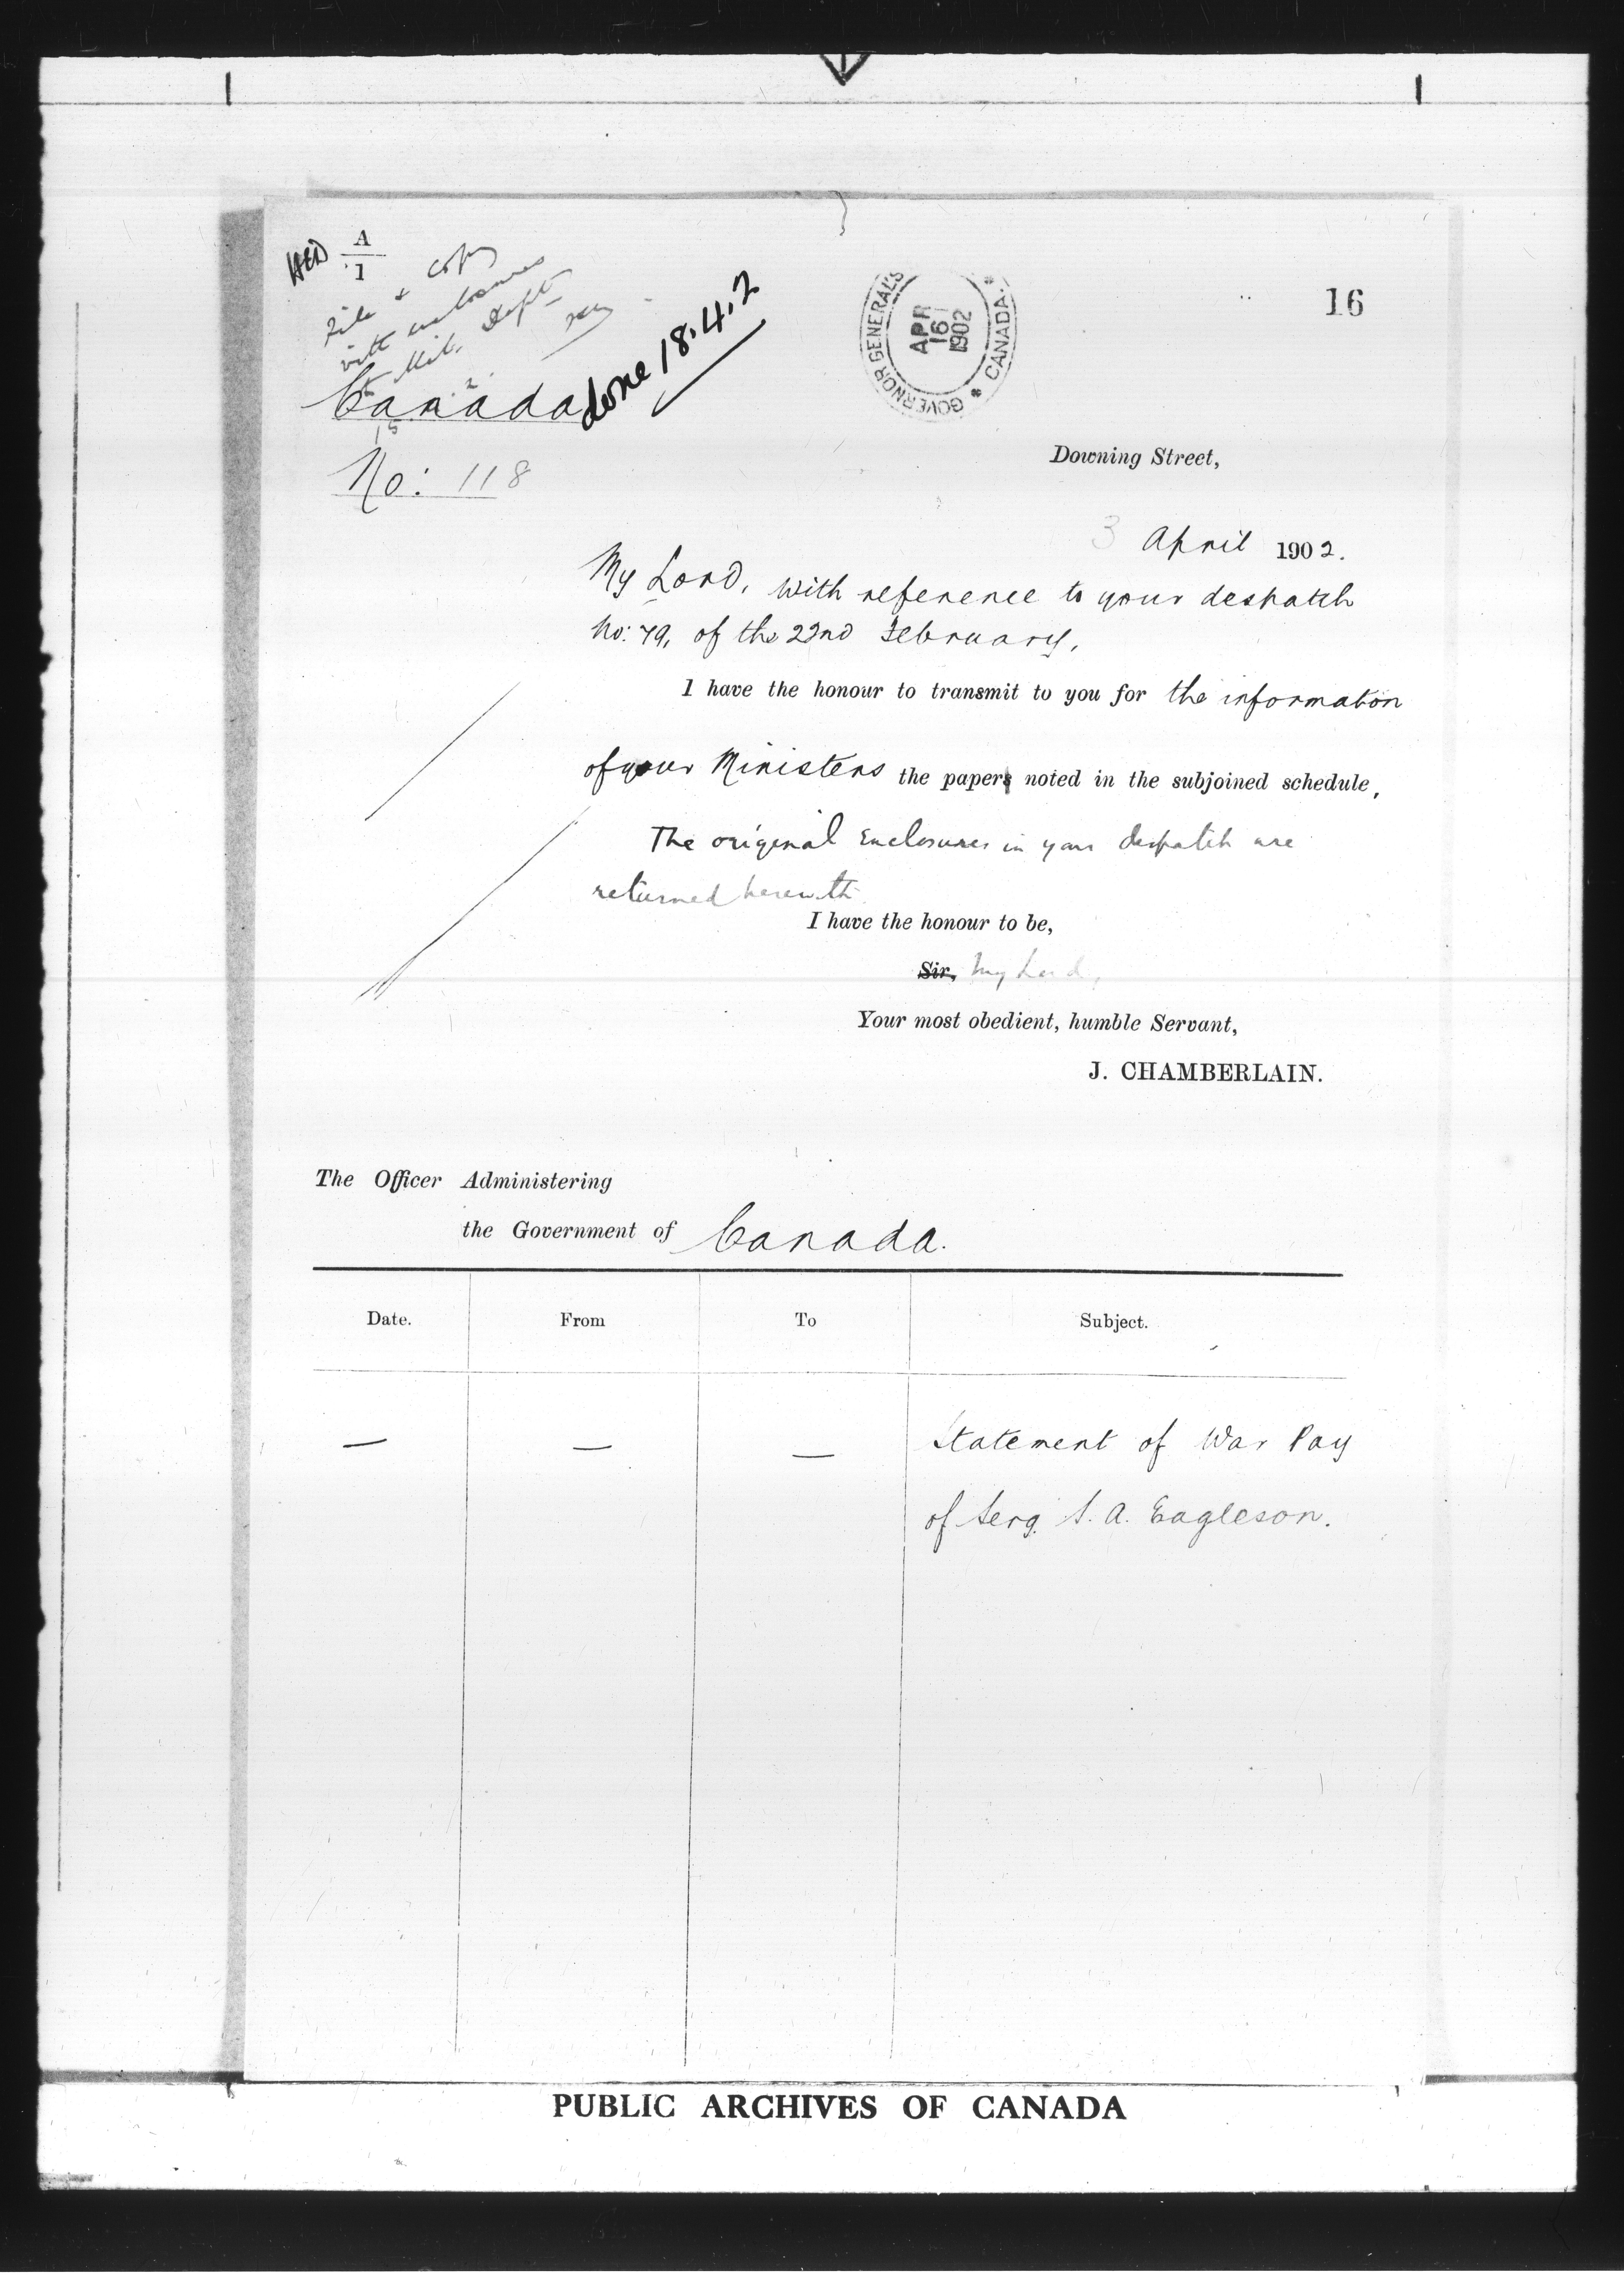 A
1
File & copy
with enclosures
to Mil. Dept.
done 18.4.2
GOVERNOR GENERAL'S
CANADA.
APR
16
1902
16
Canada
No: 118
Downing Street,
3 April 1902.
My Lord, With reference to your despatch
No: 79, of the 22nd February,
I have the honour to transmit to you for the information
of your Ministers the paper noted in the subjoined schedule,
The original Enclosures in your despatch are
returned herewith
I have the honour to be,
Sir, My Lord,
Your most obedient, humble Servant,
J. CHAMBERLAIN.
The Officer Administering
the Government of Canada.
Date. From To Subject.
— — — Statement of War Pay
of Serg. S. A. Eagleson.
PUBLIC ARCHIVES OF CANADA